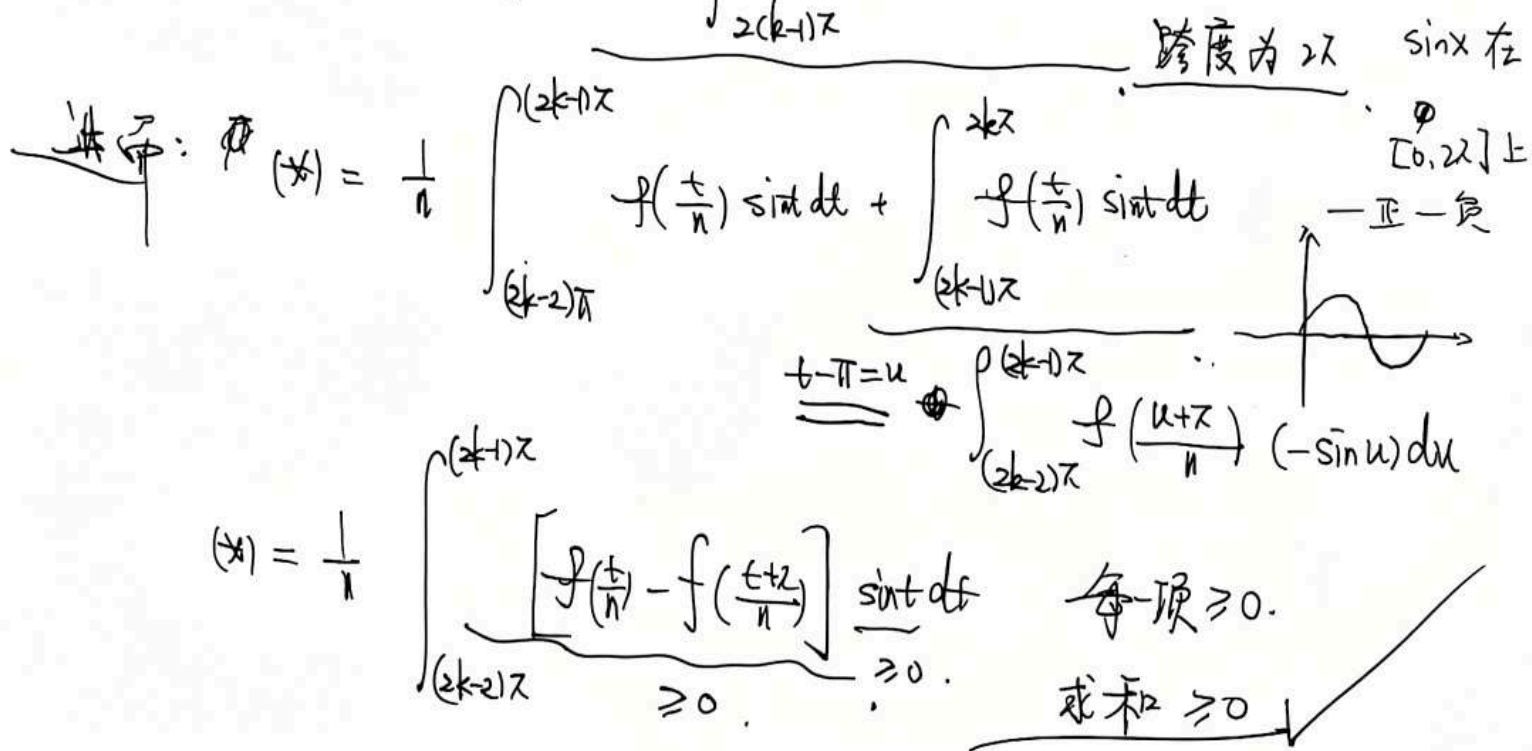 ∫_{2(k-1)π}
跨度为 2π. sinx 在
[0,2π]上
一正一负
(*) = 1/n ∫_{(2k-2)π}^{(2k-1)π} f(t/n) sint dt + ∫_{(2k-1)π}^{2kπ} f(t/n) sint dt
t-π=u ∫_{(2k-2)π}^{(2k-1)π} f((u+π)/n) (-sinu) du
(*) = 1/n ∫_{(2k-2)π}^{(2k-1)π} [f(t/n) - f((t+π)/n)] sint dt 每一项 ≥0.
≥0. ≥0.
求和 ≥0